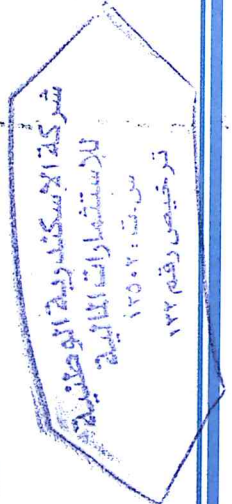 شركة الاسكندرية الوطنية
للاستثمارات المالية
س.ت: ١٢٥٠٢
ترخيص رقم ١٢٢